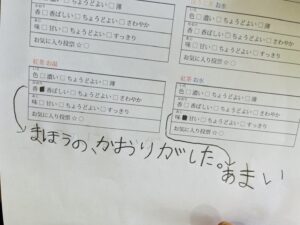 紅茶 お水
色 □ 濃い □ ちょうどよい □ 薄
香 □ 香ばしい □ ちょうどよい □ さわやか
味 □ 甘い □ ちょうどよい □ すっきり
お気に入り投票 ☆ ○
色 □ 濃い □ ちょうどよい □ 薄
香 □ 香ばしい □ ちょうどよい □ さわやか
味 □ 甘い □ ちょうどよい □ すっきり
お気に入り投票 ☆ ○
紅茶 お湯
色 □ 濃い □ ちょうどよい □ 薄
香 ■ 香ばしい □ ちょうどよい □ さわやか
味 □ 甘い □ ちょうどよい □ すっきり
お気に入り投票 ☆ ○
紅茶 お水
色 □ 濃い □ ちょうどよい □ 薄
香 □ 香ばしい □ ちょうどよい □ さわやか
味 ■ 甘い □ ちょうどよい □ すっきり
お気に入り投票 ☆ ○
まほうの、かおりがした。
あまい